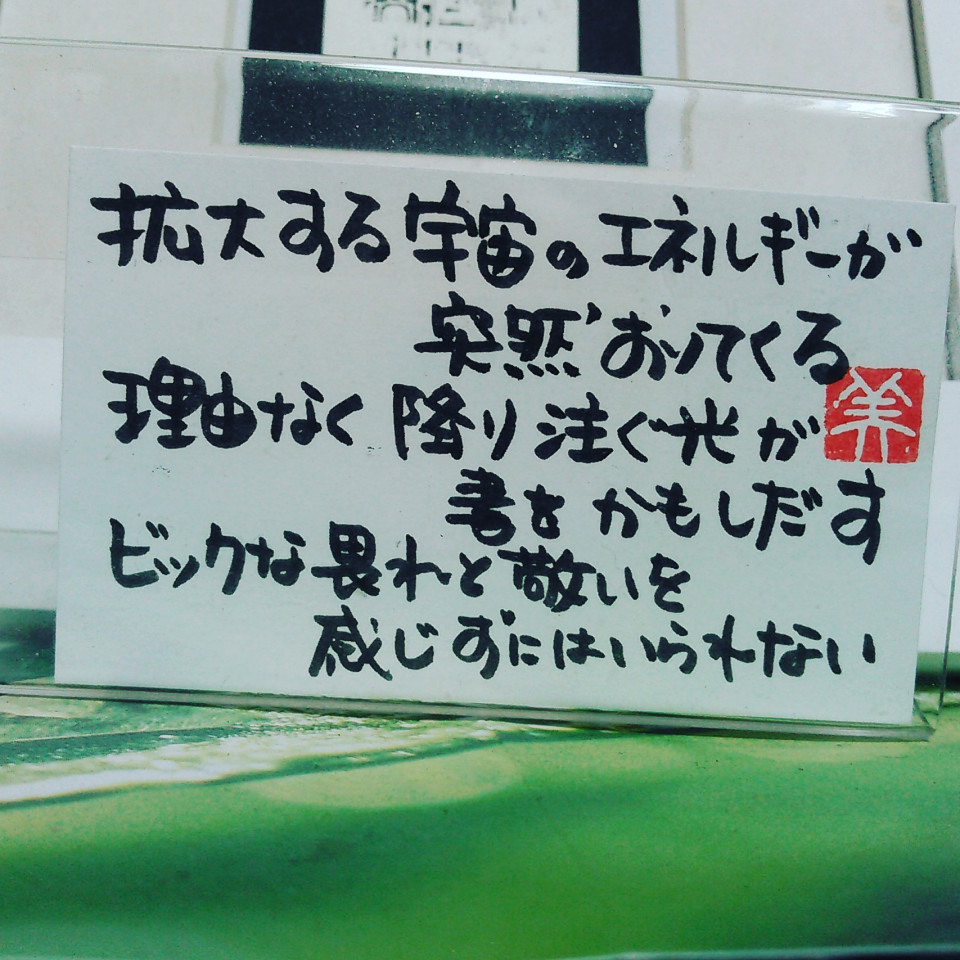 拡大する宇宙のエネルギーが
突然おりてくる
理由なく降り注ぐ光が
書をかもしだす
ビックな畏れと敬いを
感じずにはいられない